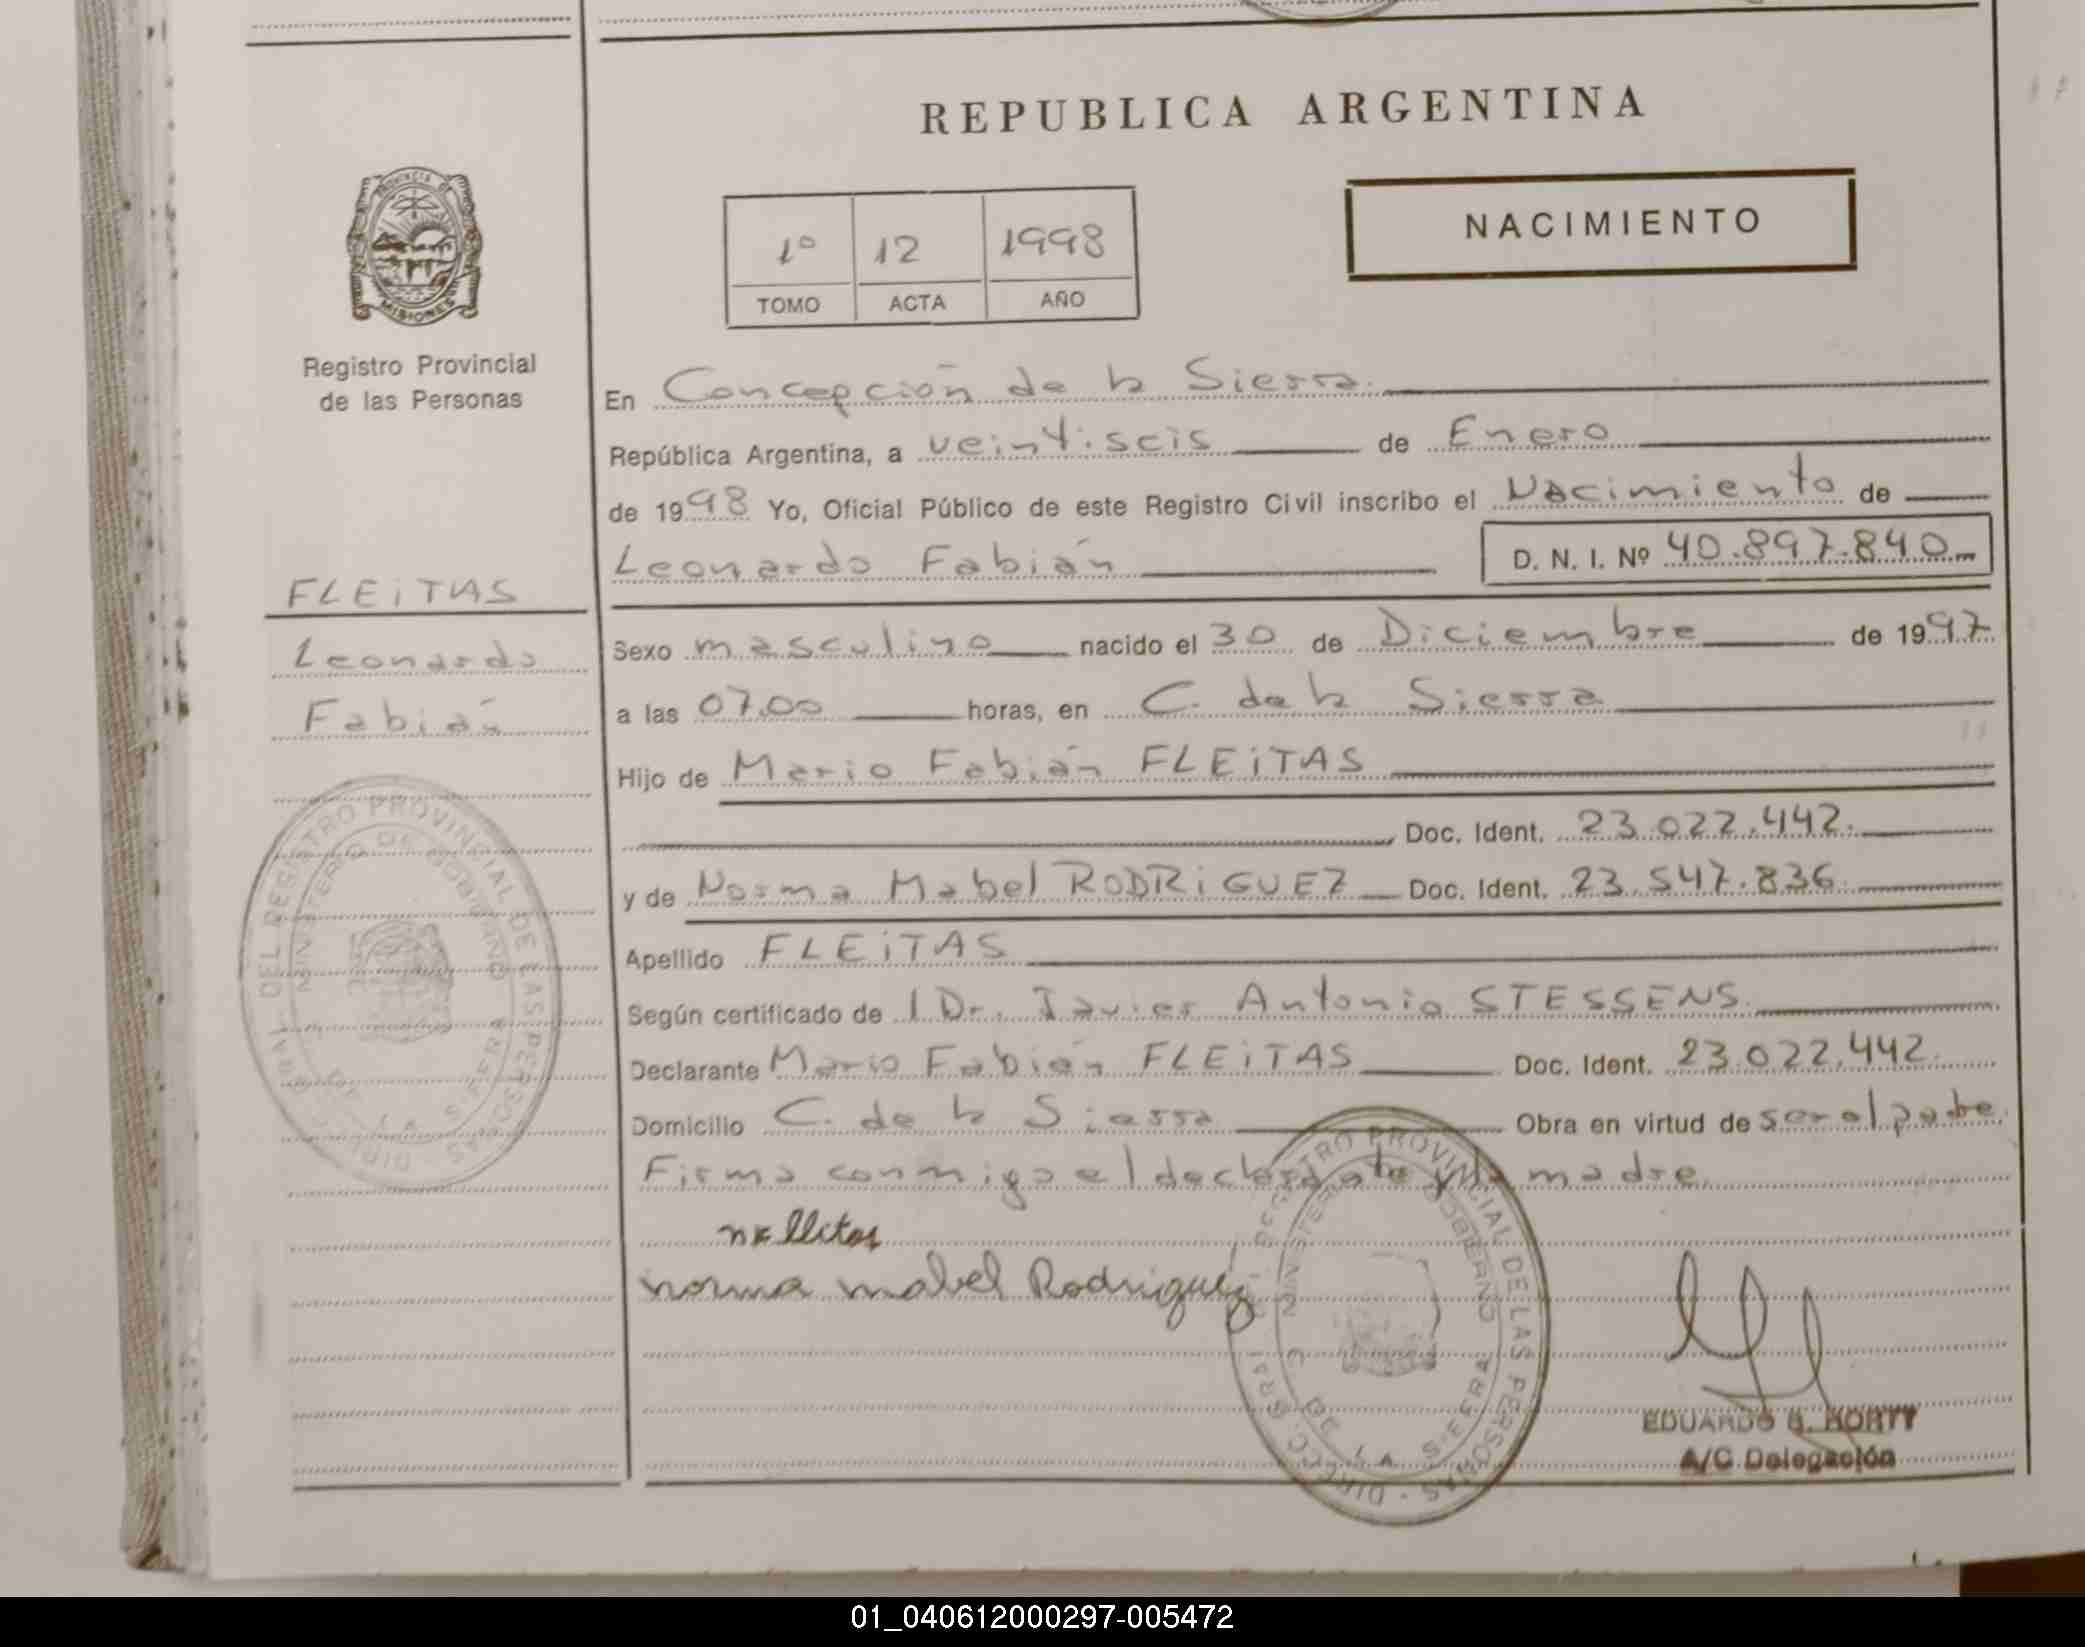 REPUBLICA ARGENTINA
NACIMIENTO
1º 12 1998
TOMO ACTA AÑO
PROVINCIA DE
MISIONES
Registro Provincial
de las Personas
FLEiTAS
Leonardo
Fabián
En Concepción de la Sierra
República Argentina, a veintiseis de Enero
de 1998 Yo, Oficial Público de este Registro Civil inscribo el Nacimiento de
Leonardo Fabián D. N. I. Nº 40.897.840
Sexo masculino nacido el 30 de Diciembre de 1997
a las 07.00 horas, en C. de la Sierra
Hijo de Mario Fabián FLEiTAS
Doc. Ident. 23.022.442.
y de Norma Mabel RODRiGUEZ Doc. Ident. 23.547.836.
Apellido FLEiTAS
Según certificado de l Dr. Javier Antonio STESSENS.
Declarante Mario Fabián FLEiTAS Doc. Ident. 23.022.442.
Domicilio C. de la Sierra Obra en virtud de ser el padre.
Firma conmigo el declarante y la madre.
norma mabel Rodriguez
DIRECC. GRAL. DEL REGISTRO PROVINCIAL DE LAS PERSONAS
MINISTERIO DE GOBIERNO
C. DE LA SIERRA
DIRECC. GRAL. DEL REGISTRO PROVINCIAL DE LAS PERSONAS
MINISTERIO DE GOBIERNO
C. DE LA SIERRA
EDUARDO
A/C Delegación
01_040612000297-005472